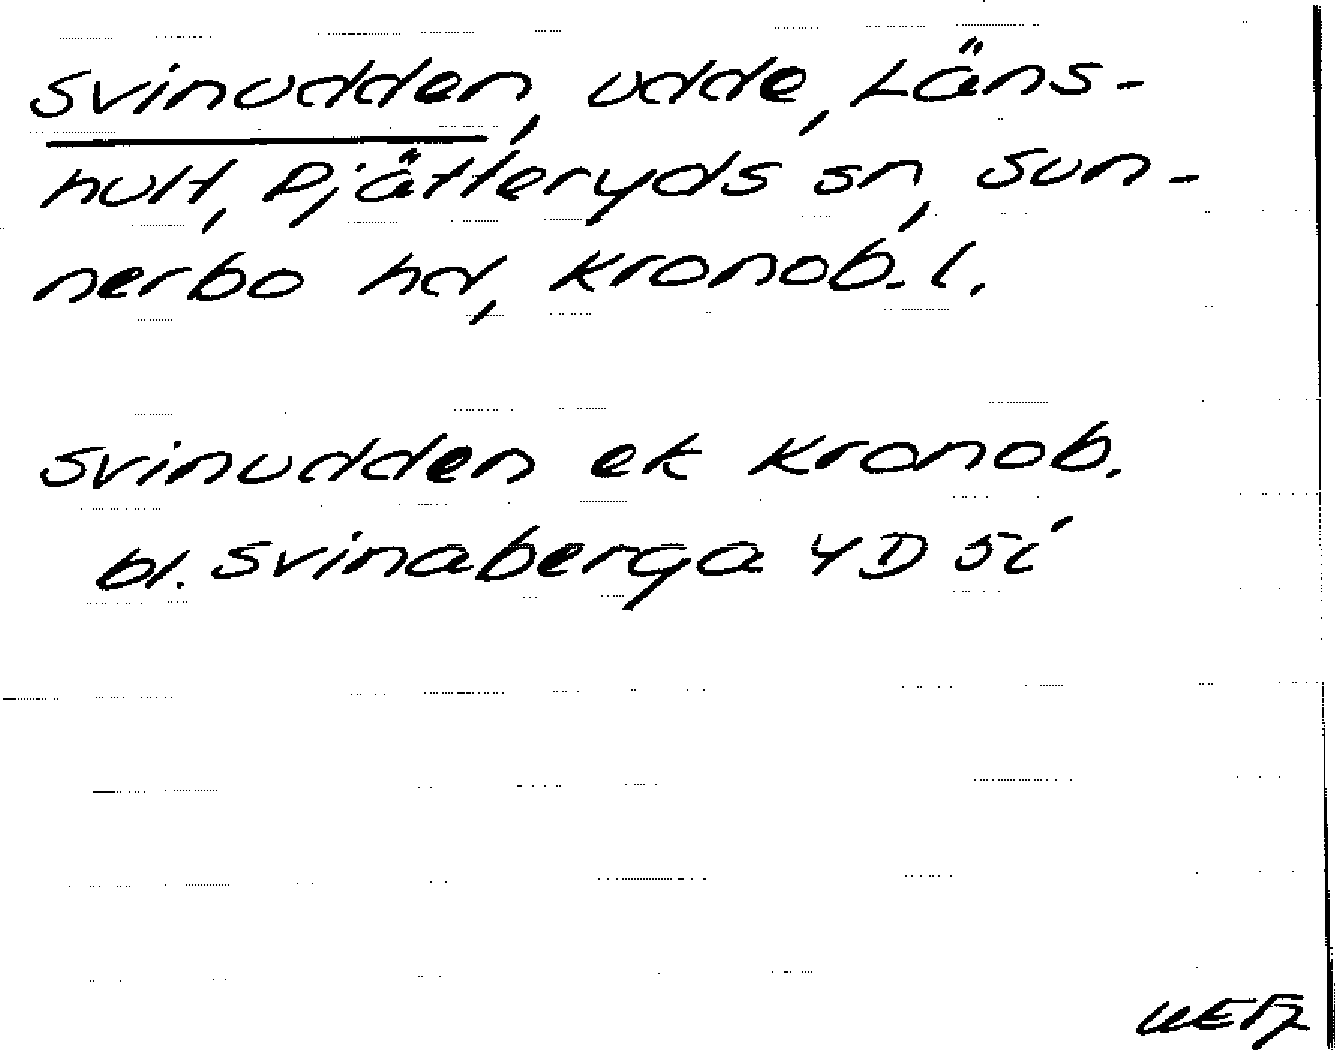 Svinudden, udde, Läns-
hult, Pjätteryds sn, Sun-
nerbo hd, Kronob. l.
Svinudden ek Kronob.
bl. Svinaberga 4D 5i